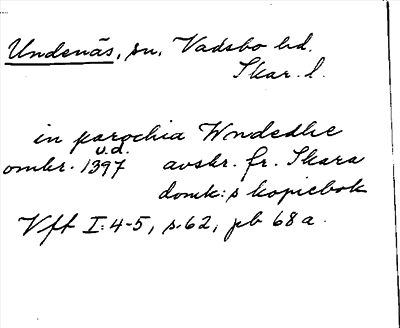 Undenäs, sn, Vadsbo hd.
Skar. l.
in parochia Wndedhe
u.d.
omkr. 1397 avskr. fr. Skara
domk:s kopiebok
Vft I: 4-5, s. 62, pb 68 a.